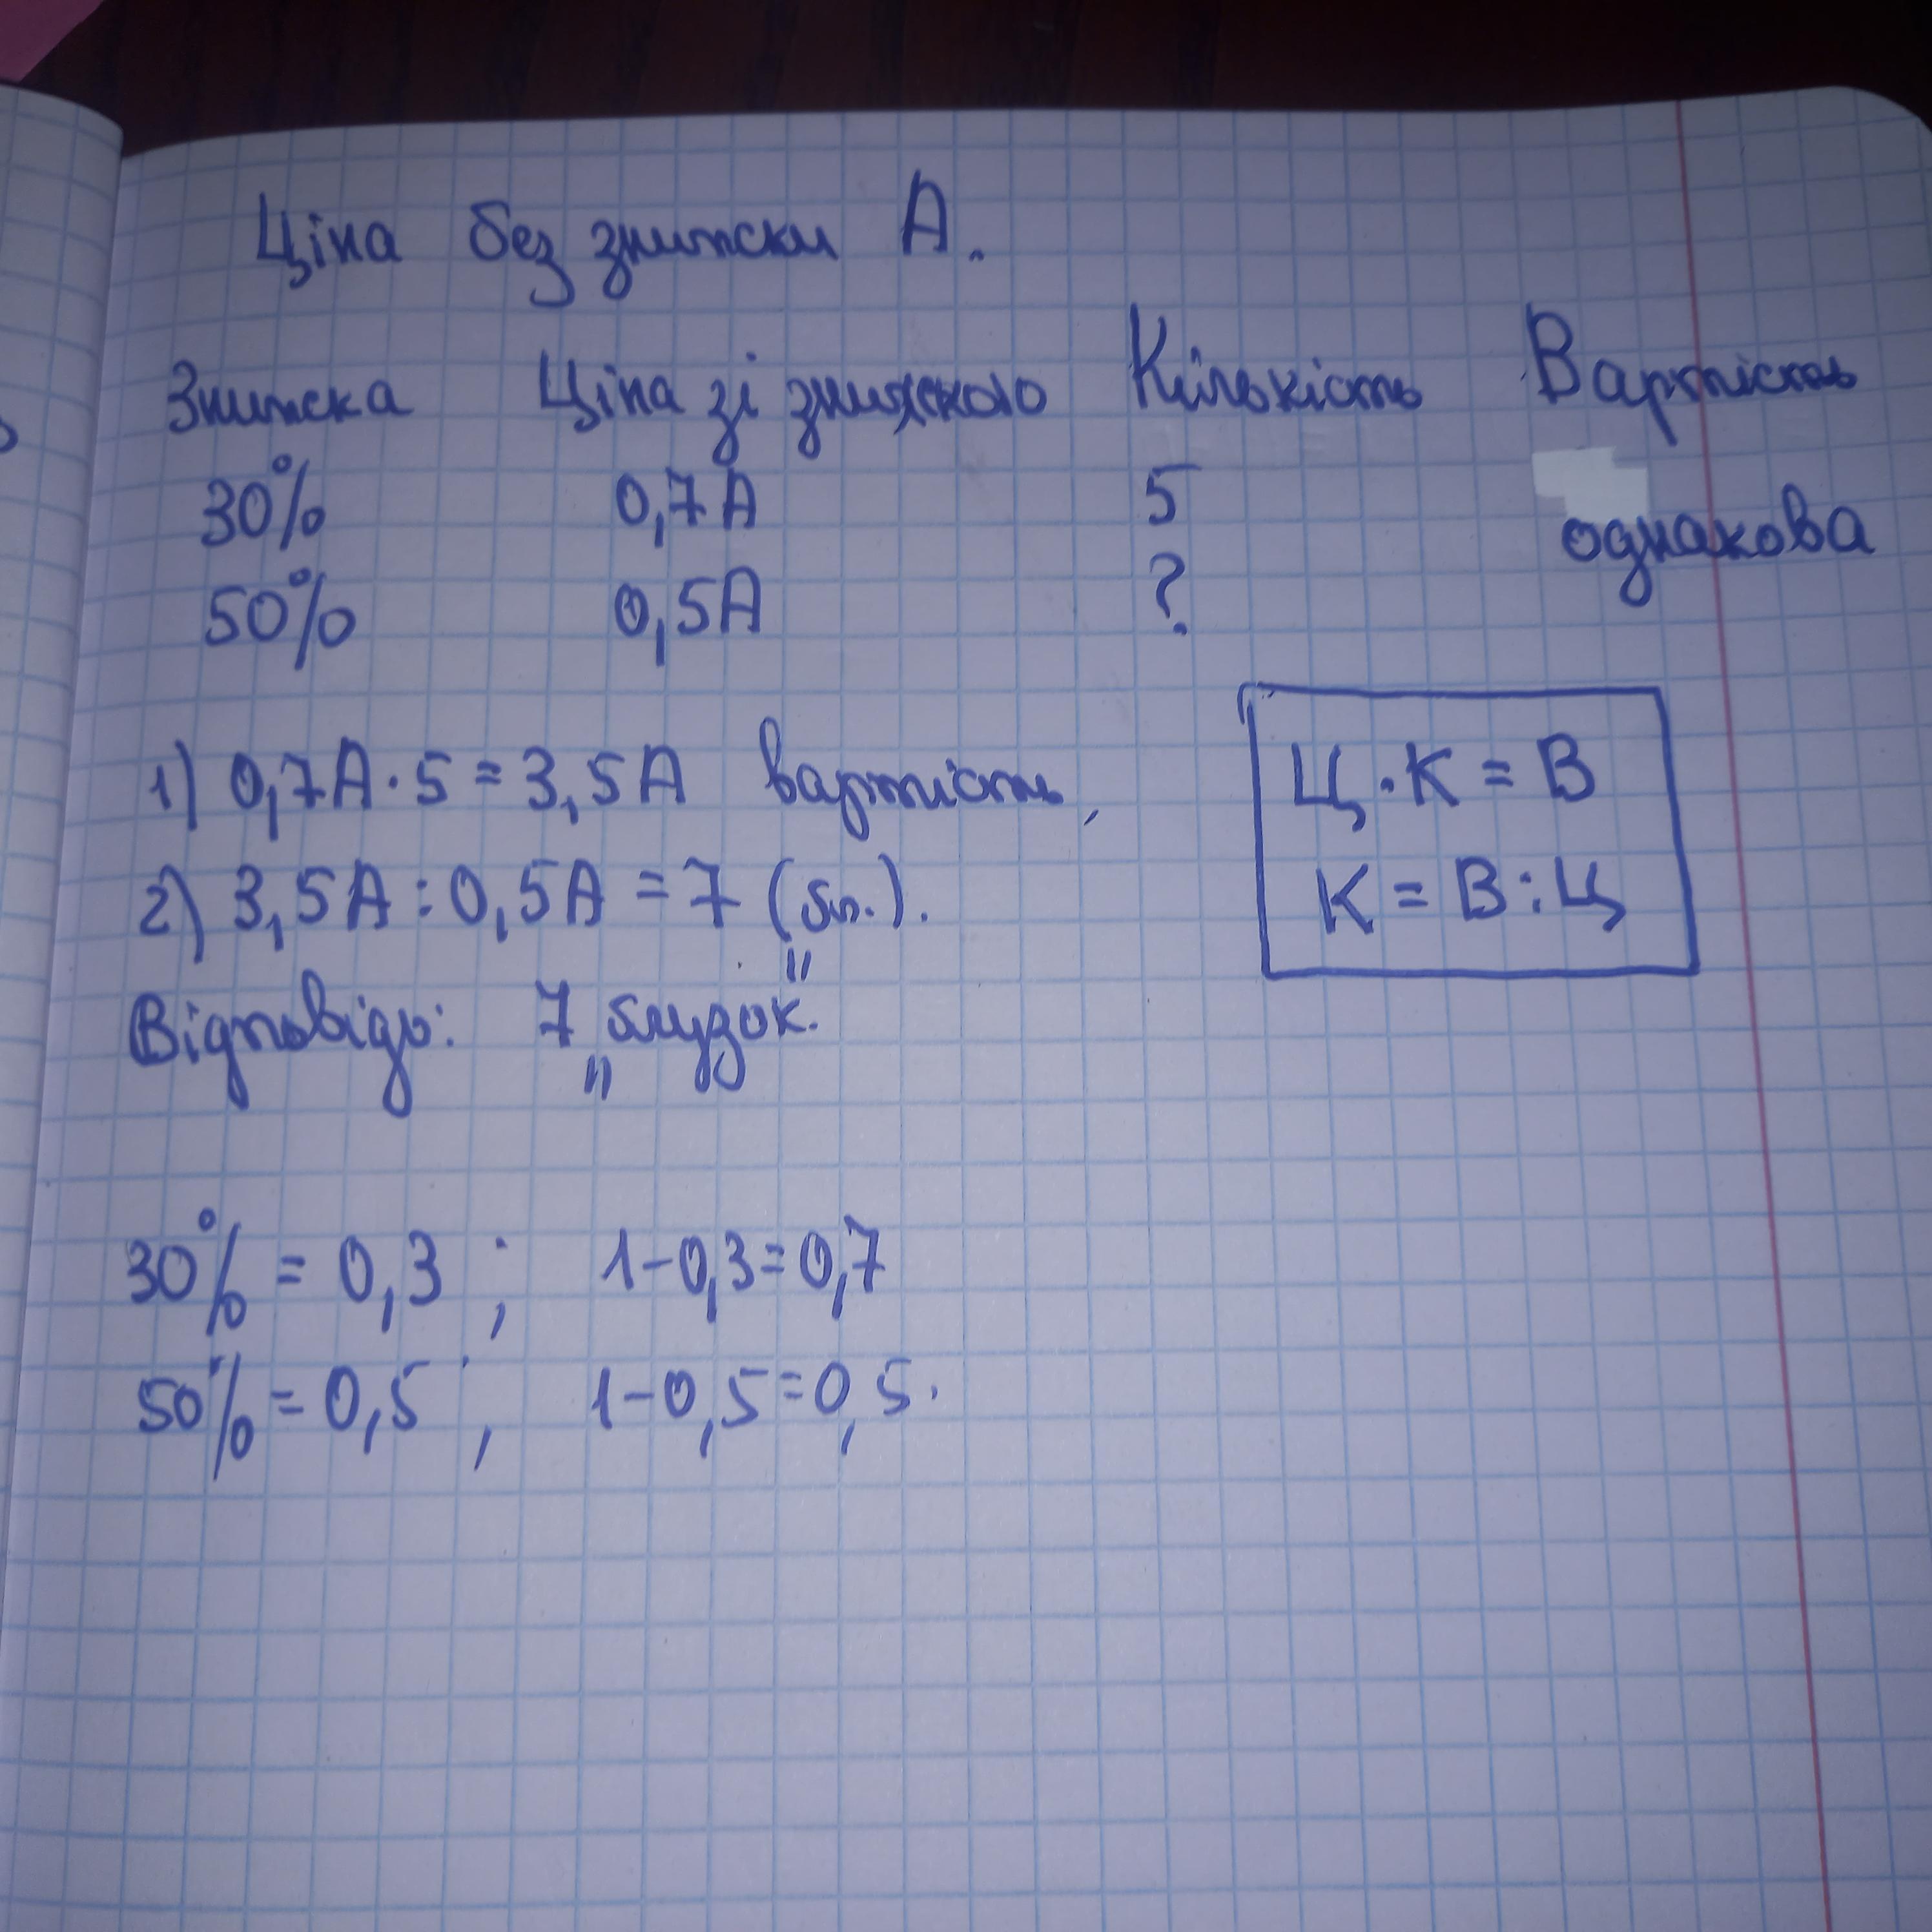 Ціна без знижки А.
Знижка Ціна зі знижкою Кількість Вартість
30% 0,7А 5
однакова
50% 0,5А ?
1) 0,7А · 5 = 3,5А вартість,
2) 3,5А : 0,5А = 7 (бл.).
Ц · К = В
К = В : Ц
Відповідь: 7 „блузок".
30% = 0,3 ; 1 - 0,3 = 0,7
50% = 0,5 ; 1 - 0,5 = 0,5.